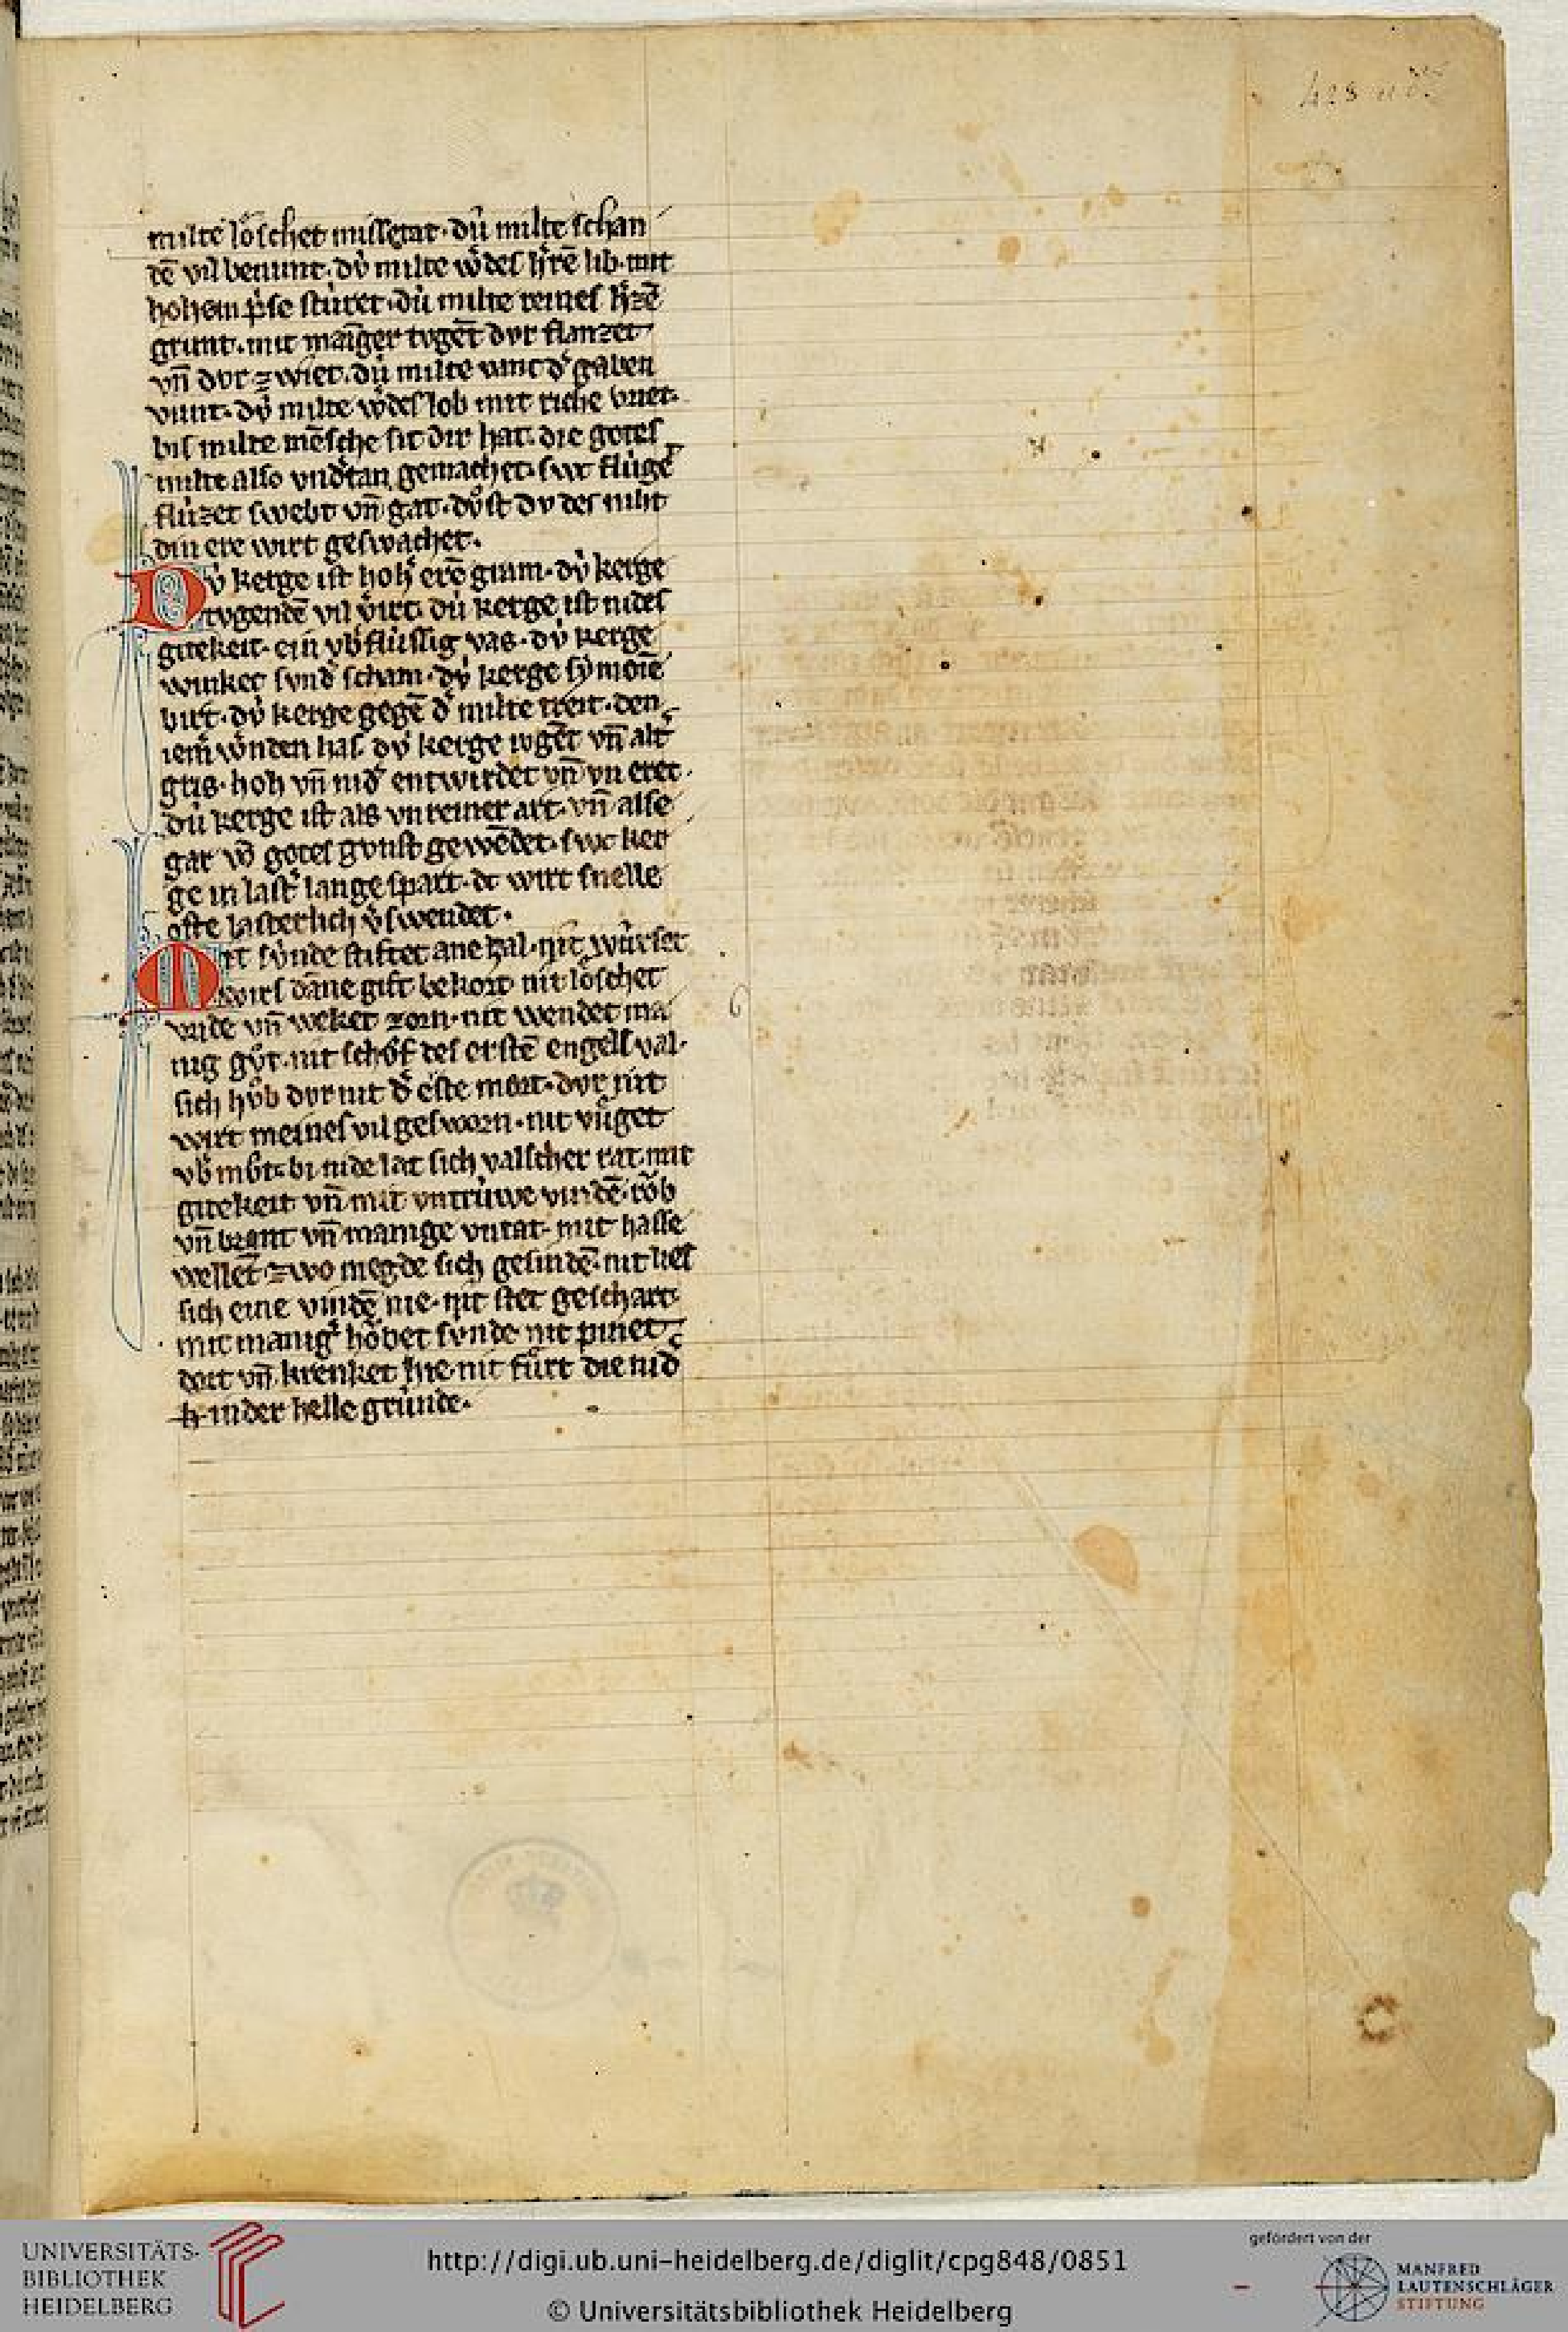 milte löschet missetat · dü milte schan
dē vil benimt · dv̇ milte ẘdes h̾rē lib · mit
hohem p̾se stüret · dü milte reines h̾zē
grunt · mit manger tvgēt dvr flanzet
vn̄ dvr zwiet · dü milte vint d̾ gaben
vunt · dv̇ milte ẘdes lob mit riche
bis milte mēsche sit dir hat · die gotes
milte also vnd̾tan gemachet · swc flüge
flüzet swebt vn̄ gat · dv st dv des niht
din ere wirt geswachet ·
Dv̇ kerge ist hoh̾ erē gram · dv̇ kerge
tvgendē vil v̾irt · dü kerge ist nides
gitekeit · ein vb̾flüssig vas · dv̇ kerge
winket svnd̾ scham · dv̇ kerge sẏmonē
birt · dv̇ kerge gegē d̾ milte treit · den
iem̾ w̾nden has · dv̇ kerge ivgēt vn̄ alt̾
gris · hoh vn̄ nid̾ entwirdet vn̄ vn eret ·
dü kerge ist als vnreiner art · vn̄ alse
gar vō gotes gvnst gewēdet · swc ker
ge in last̾ lange spart · dc wirt snelle
ofte lasterlich v̾swendet ·
Nit sv̇nde stiftet ane zal · nit würset
wirs dāne gift bekort · nit löschet
vride vn̄ weket zorn · nit wendet ma
nig gv̊t · nit schv̊f des erstē engels val ·
sich hv̊b dvr nit d̾ erste mort · dvr nit
wirt meines vil gesworn · nit vüget
vb̾mv̊t · bi nide lat sich valscher rat · mit
gitekeit vn̄ mit vntrüwe vindē · rȯb
vn̄ brant vn̄ manige vntat · mit hasse
wellēt zwo megde sich gesindē · nit lies
sich eine vindē nie · nit stet geschart
mit manig̾ hȯbet svnde · nit pinet
dort vn̄ krenket hie · nit fürt die nid̾
h · in der helle gründe ·
428
6
UNIVERSITÄTS-
BIBLIOTHEK
HEIDELBERG
http://digi.ub.uni-heidelberg.de/diglit/cpg848/0851
© Universitätsbibliothek Heidelberg
gefördert von der
MANFRED
LAUTENSCHLÄGER
STIFTUNG